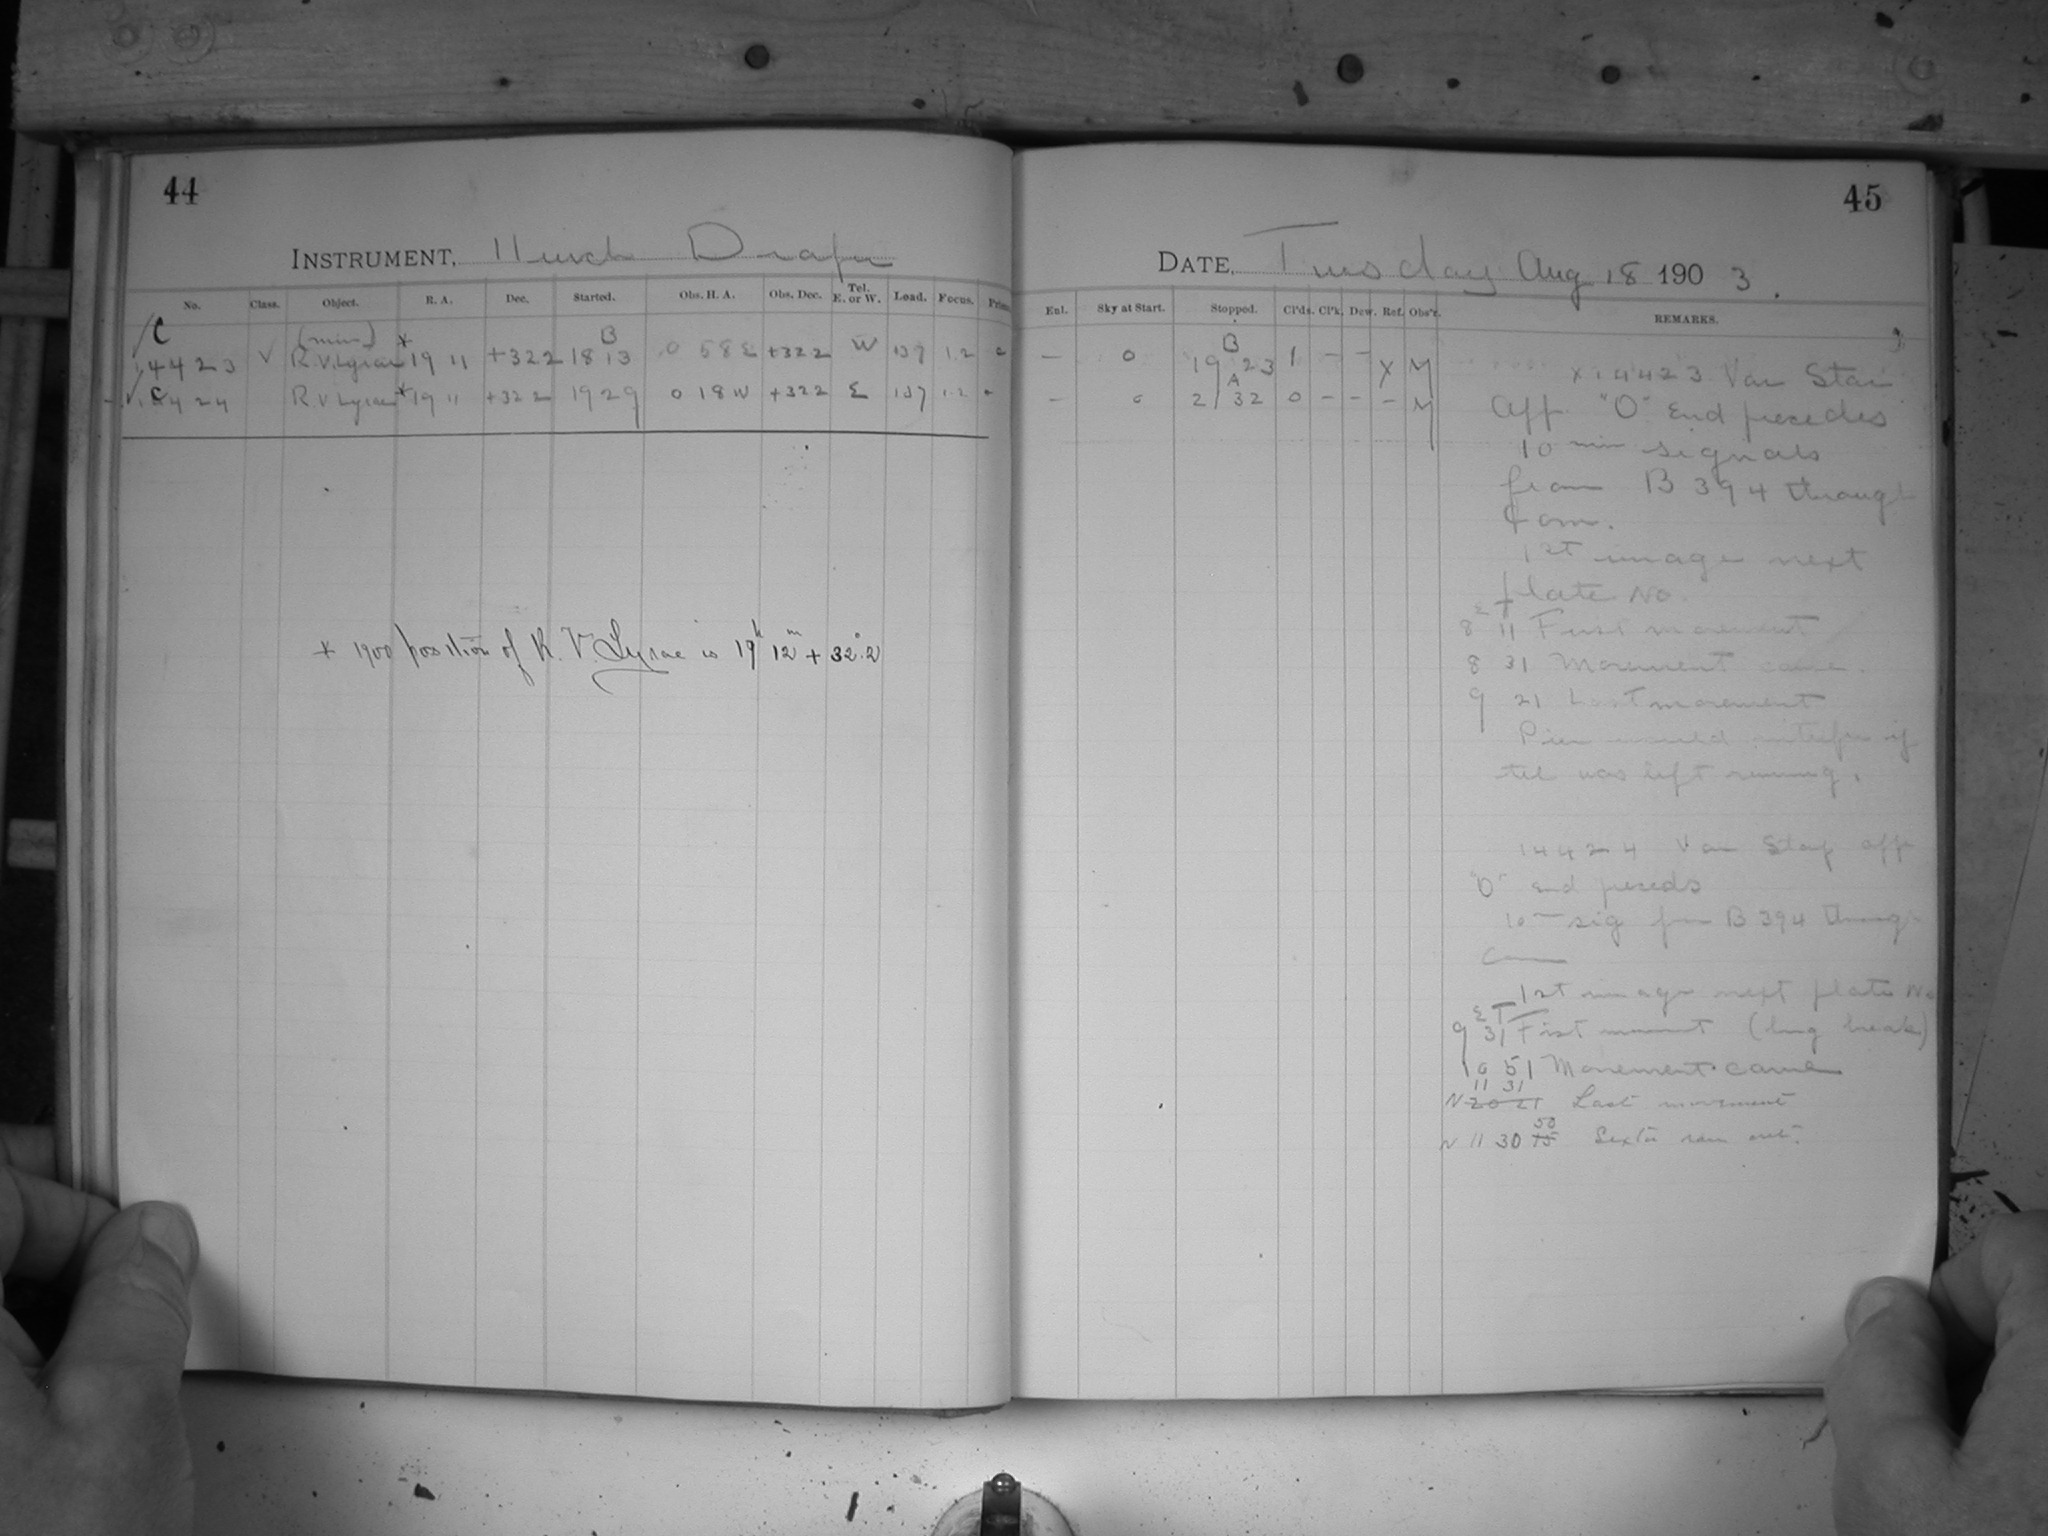 44
INSTRUMENT, 11 inch Draper
No. Class. Object. R. A. Dec. Started. Obs. H. A. Obs. Dec. Tel. E. or W. Load. Focus.
C (min) * B
14423 V R.V. Lyrae 19 11 +322 1813 0 58 E +322 W 137 1.2
C
14424 R V Lyrae * 19 11 +322 1929 0 18 W +322 E 137 1.2
* 1900 position of R. V. Lyrae is 19h 12m + 32°.2
45
DATE, Tuesday Aug 18 1903.
Enl. Sky at Start. Stopped. Cl'ds. Cl'k. Dew. Ref. Obs'r. REMARKS.
B
— 0 19 23 1 – – X M
A
— 0 21 32 0 – – – M
X 14423 Var Star
App. "O" End precedes
10 min signals
from B 394 through
Com.
1st image next
plate No.
E T
8 11 First movement
8 31 Movement came.
9 21 Last movement
Pier would interfere if
tel was left running.
14424 Var Star app
"O" End preceds
10m sig from B 394 through
Com
1st image next plate No
E T
9 31 First movement (long break)
10 51 Movement came
11 31
N 20 21 Last movement
50
N 11 30 15 Sextor ran out.